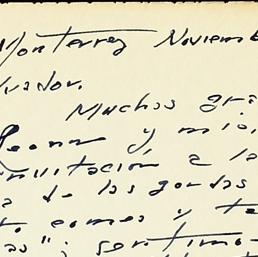 Monterrey Noviemb
vador.
Muchas gra
y mio,
invitación a la
a de las gordas
comes y te
as"; sentimo-